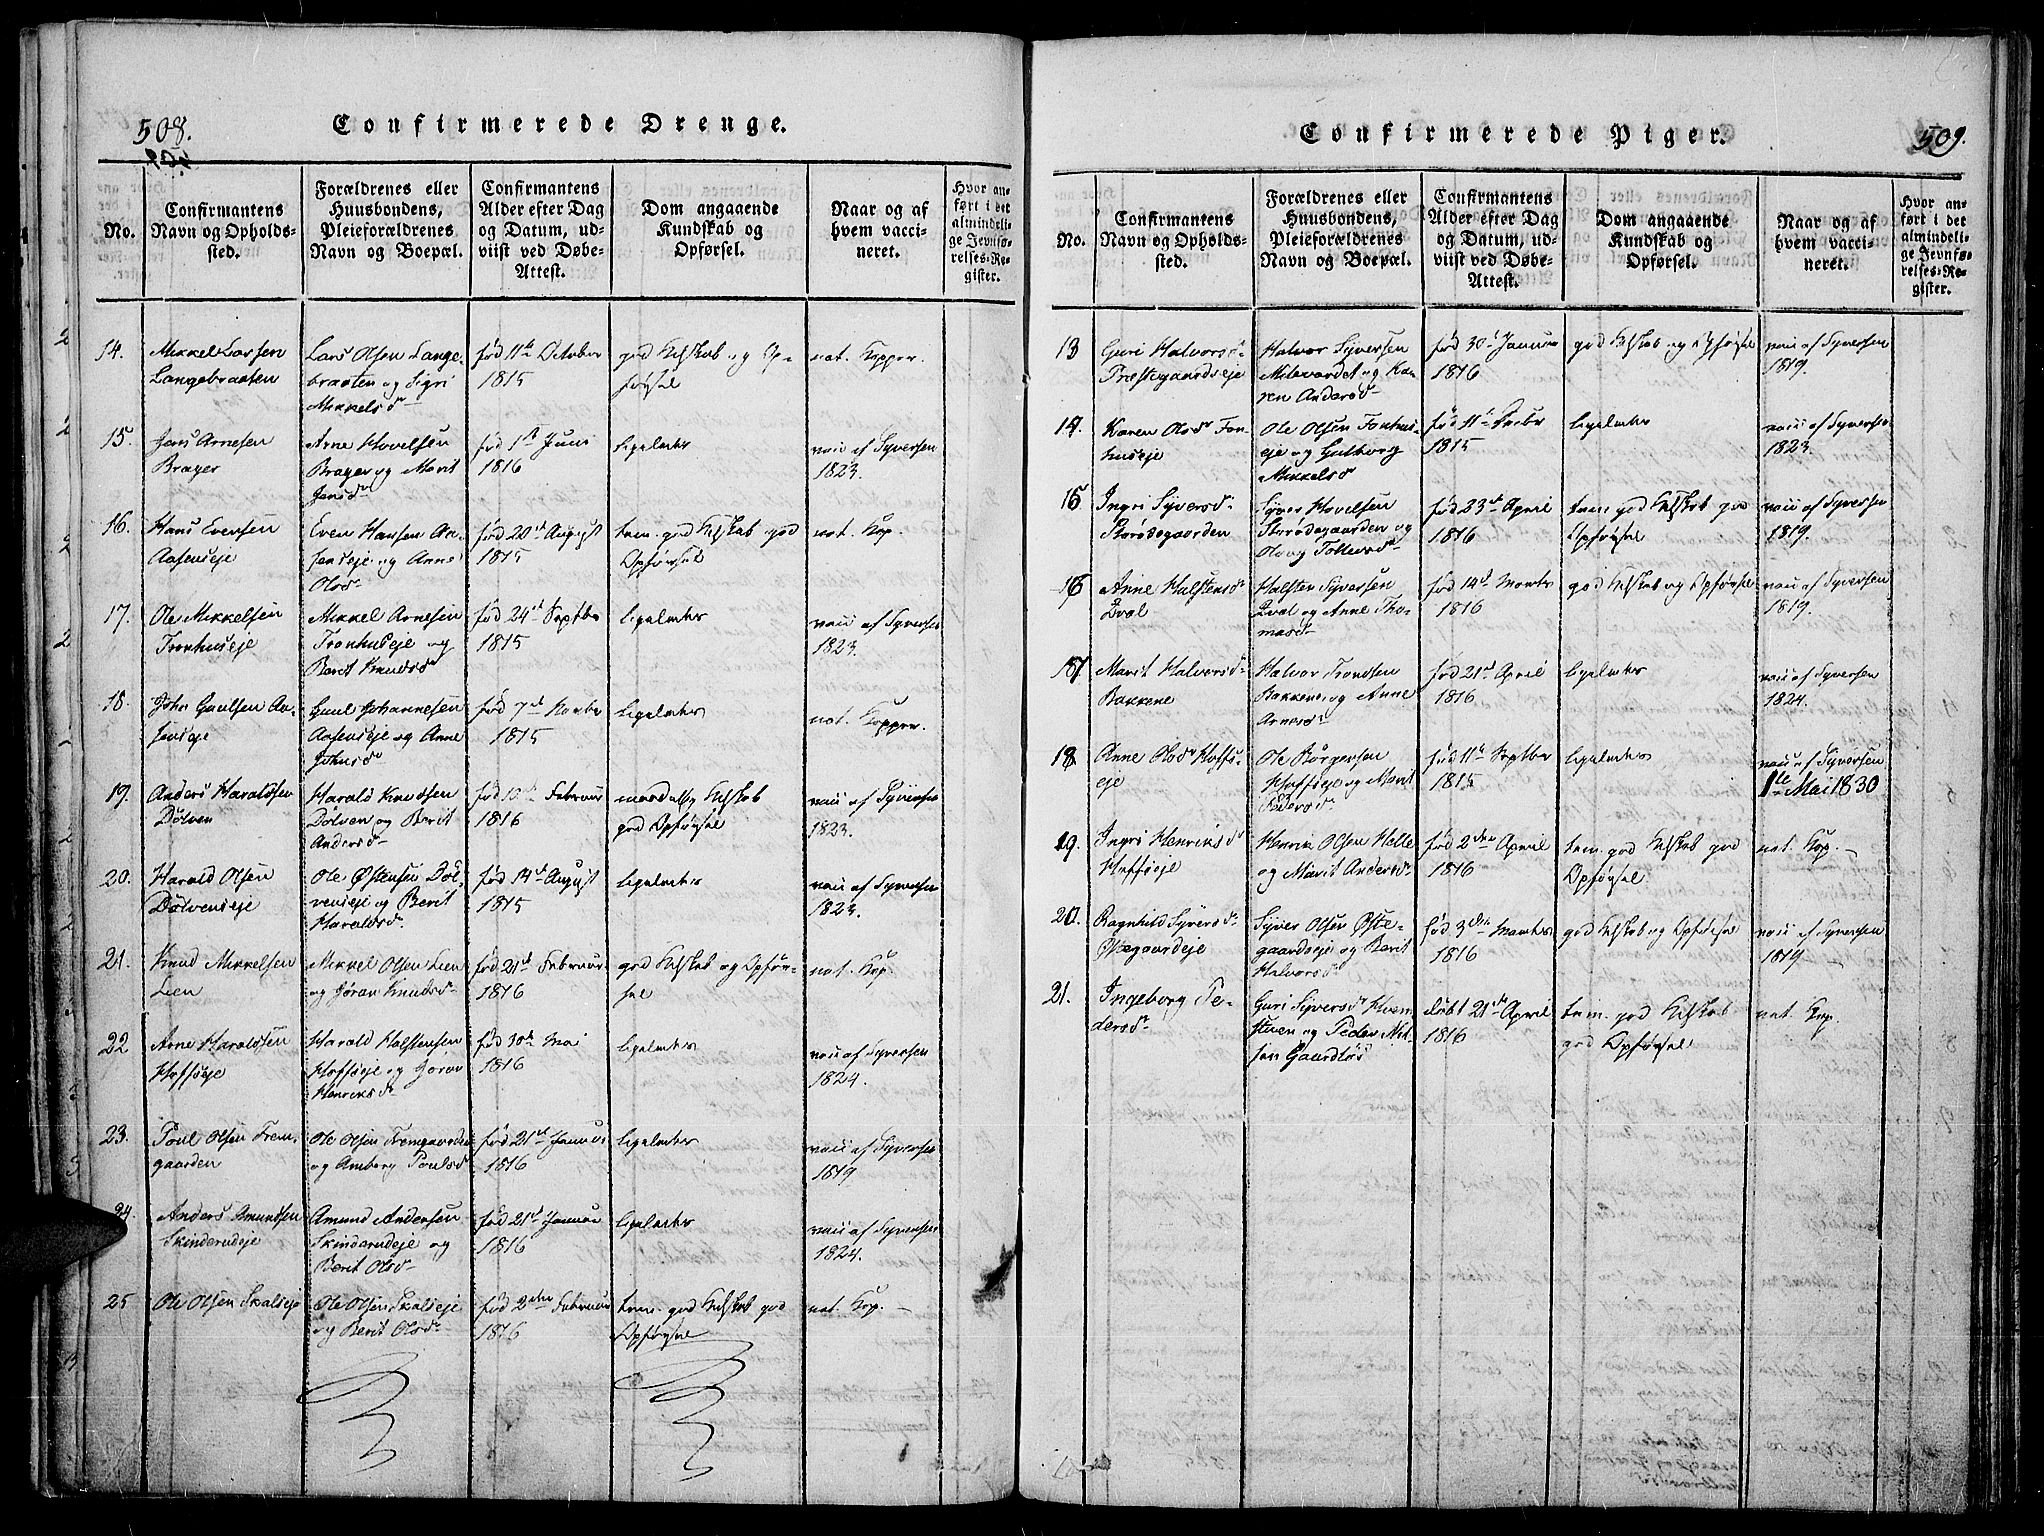 508.
Confirmerede Drenge.
No.
Confirmantens
Navn og Opholds-
sted.
Forældrenes eller
Huusbondens,
Pleieforældrenes
Navn og Boepæl.
Confirmantens
Alder efter Dag
og Datum, ud-
viist ved Døbe-
Attest.
Dom angaaende
Kundskab og
Opførsel.
Naar og af
hvem vacci-
neret.
Hvor an-
ført i det
almindeli-
ge Jevnfø-
relses-Re-
gister.
14.
Mikkel Larsen
Langebraaten
Lars Olsen Lange-
braaten og Sigri
Mikkelsd
født 11te October
1815
god Kdskab og Op-
førsel
nat. Kopper.
15.
Jens Arnesen
Brager
Arne Hovelsen
Brager og Marit
Jensd
født 1ste Juni
1816
ligeledes
vacc af Syversen
1823.
16.
Hans Evensen
Aasenseje
Even Hansen Aa-
senseje og Anne
Olsd
født 20de August
1815
tem. god Kdskab god
Opførsel
nat. Kop.
17.
Ole Mikkelsen
Tronhuseje
Mikkel Arnesen
Tronhuseje og
Berit Knudsd
født 24de Septbr
1815
ligeledes
vacc af Syversen
1823.
18.
John Guulsen Aa-
senseje
Guul Johannesen
Aasenseje og Anne
Johnsd
født 7de Novbr
1815
ligeledes
nat. Kopper.
19.
Anders Haraldsen
Dölven
Harald Knudsen
Dölven og Berit
Andersd
født 10de Februar
1816
maadelig Kdskab
god Opførsel
vacc af Syversen
1823.
20.
Harald Olsen
Dölvenseje
Ole Østensen Döl-
venseje og Berit
Haraldsd
født 14de August
1815
ligeledes
vacc af Syversen
1823.
21.
Knud Mikkelsen
Lien
Mikkel Olsen Lien
og Jöran Knudsd
født 21de Februar
1816
god Kdskab og Opfør-
sel
nat. Kop.
22
Arne Haraldsen
Hoffseje
Harald Halstensen
Hoffseje og Jöran
Henriksd
født 30te Mai
1816
ligeledes
vacc af Syversen
1824.
23.
Poul Olsen Frem-
gaarden
Ole Olsen Fremgaarden
og Amberg Poulsd
født 21de Januar
1816
ligeledes
vacc af Syversen
1819
24.
Anders Amundsen
Skinderudeje
Amund Andersen
Skinderudeje og
Berit Olsd
født 21de Januar
1816
ligeledes
vacc af Syversen
1824.
25
Ole Olsen Skalseje
Ole Olsen Skalseje
og Berit Olsd
født 2den Februar
1816
tem. god Kdskab god
Opførsel
nat. Kop.
Confirmerede Piger.
509.
No.
Confirmantens
Navn og Opholds-
sted.
Forældrenes eller
Huusbondens,
Pleieforældrenes
Navn og Boepæl.
Confirmantens
Alder efter Dag
og Datum, ud-
viist ved Døbe-
Attest.
Dom angaaende
Kundskab og
Opførsel.
Naar og af
hvem vacci-
neret.
Hvor an-
ført i det
almindeli-
ge Jevnfø-
relses-Re-
gister.
13
Guri Halvorsd
Præstegaardseje
Halvor Syversen
Milevardet og Ka-
ren Andersd
født 30te Januar
1816
god Kdskab og Opførsel
vacc af Syversen
1819.
14.
Karen Olsd Tron-
huseje
Ole Olsen Tronhus-
eje og Gulborg
Mikkelsd
født 11te
1815
ligeledes
vacc af Syversen
1823.
15
Ingri Syversd
Storödegaarden
Syver Hovelsen
Storödegaarden og
Tollevsd
født 23de April
1816
tem. god Kdskab god
Opførsel
vacc af Syversen
1819.
16
Anne Halstensd
Qval
Halsten Syversen
Qval og Anne Tho-
masd
født 14de Marts
1816
god Kdskab og Opførsel
vacc af Syversen
1819.
17
Marit Halvorsd
Bakkene
Halvor Trondsen
Bakkene og Anne
Arnesd
født 21de April
1816
ligeledes
vacc af Syversen
1824.
18
Anne Olsd Hoffs-
eje
Ole Börgersen
Hoffseje og Marit
Pedersd
født 11te Septbr
1815
ligeledes
vacc af Syversen
1te Mai 1830
19.
Ingri Henriksd
Hoffseje
Henrik Olsen Helle
og Marit Andersd
født 2den April
1816
tem. god Kdskab god
Opførsel
nat. Kop.
20.
Ragnhild Syversd
Østegaardeje
Syver Olsen Øste-
gaardseje og Berit
Halvorsd
født 3die Marts
1816
god Kdskab og Opførsel
vacc af Syversen
1819
21.
Ingeborg Pe-
dersd
Guri Syversd Hvem-
stuen og Peder Nil-
sen Gaardlös
döbt 21de April
1816
tem. god Kdskab
god Opførsel
nat. Kop.